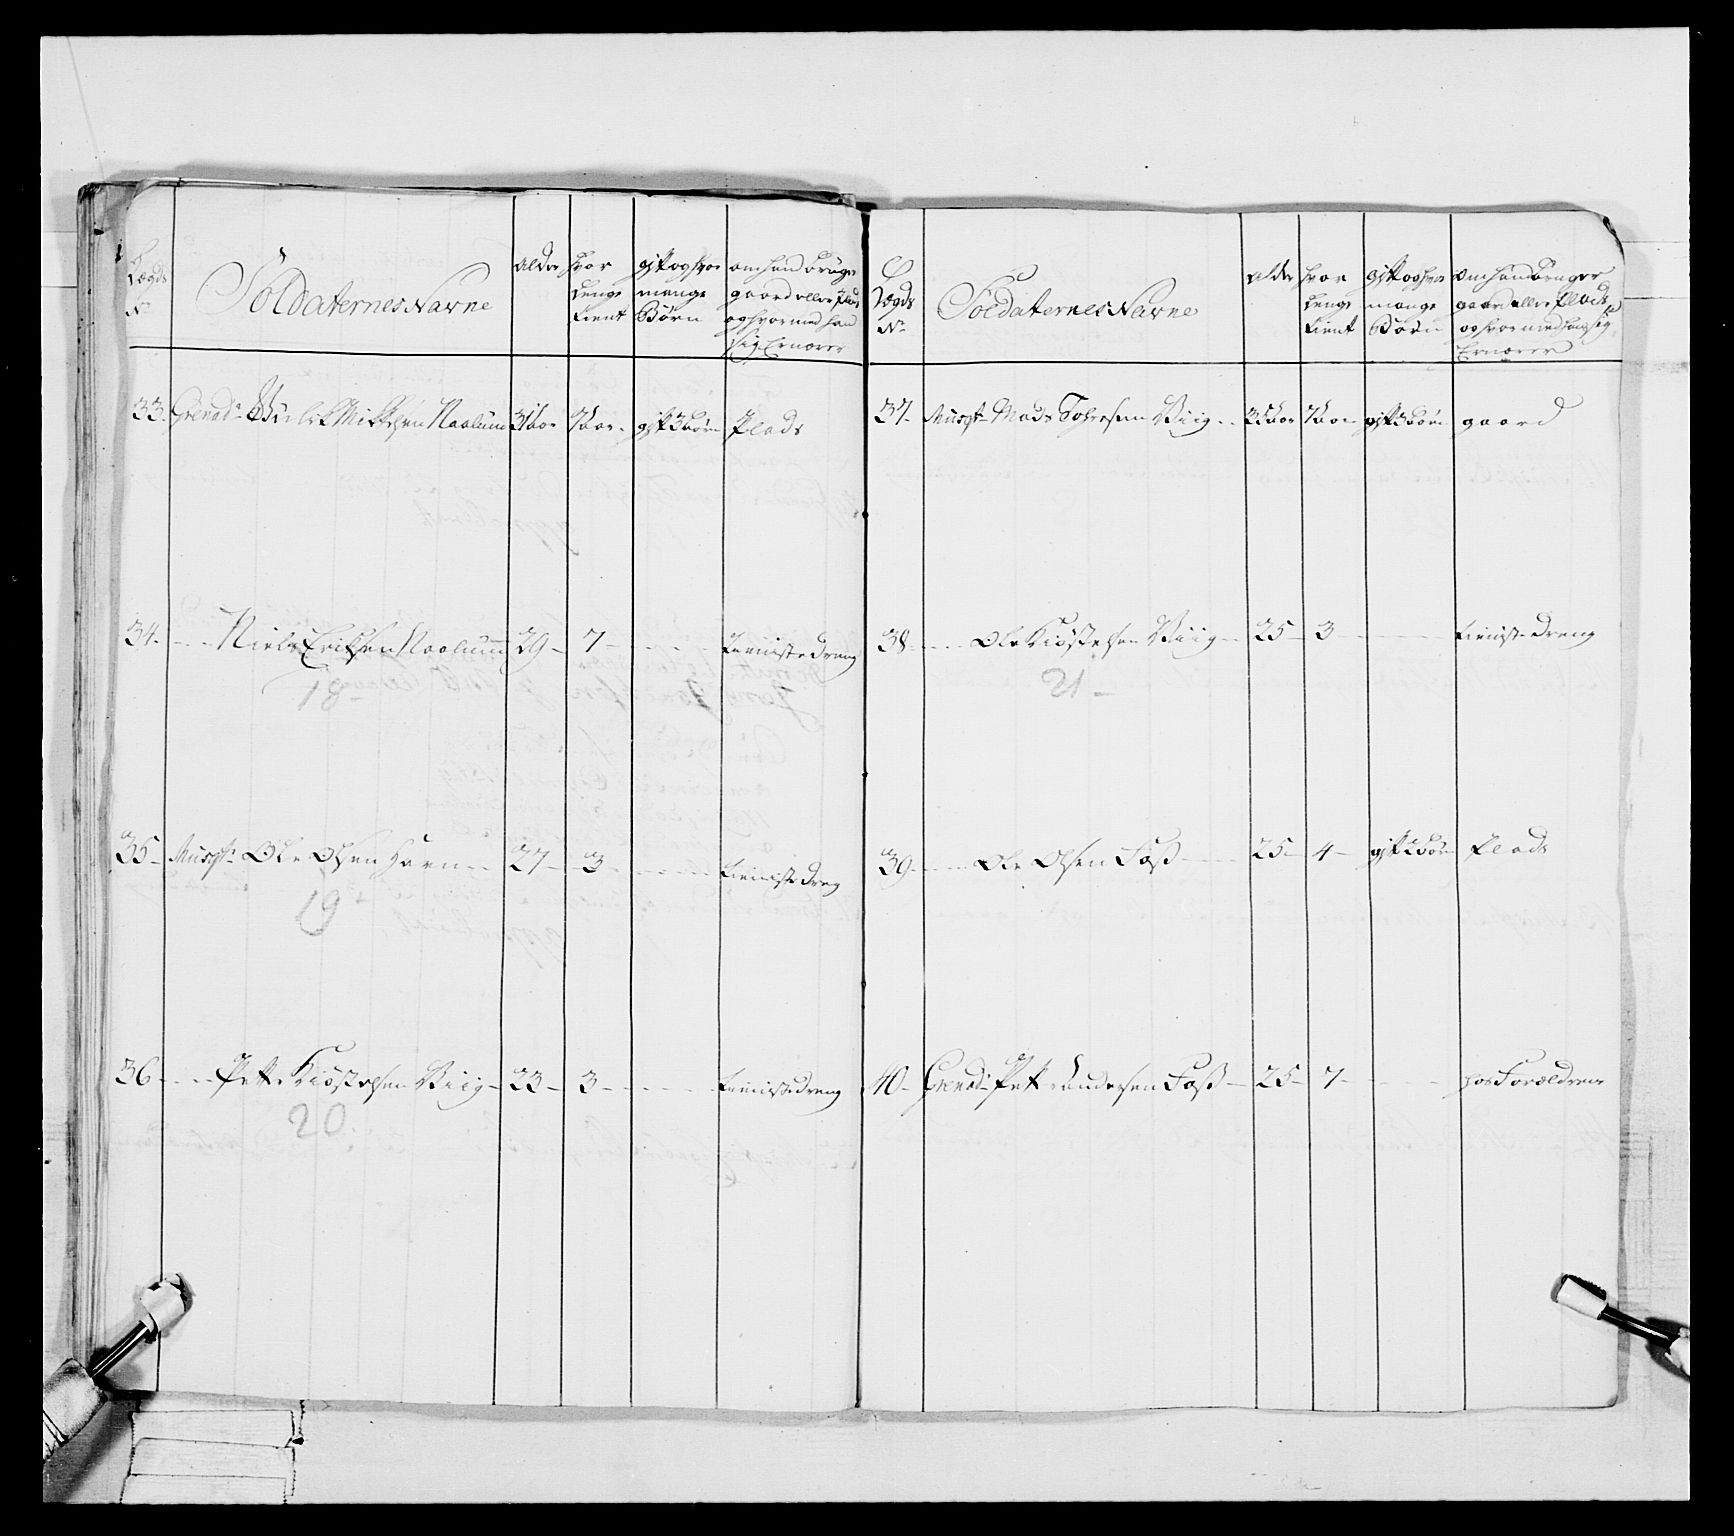 Lægds
No
Soldaternes Navne
alder
hvor
lenge
tient
gift og hvor
mange
Børn
om hand bruger
gaard eller Plads
og hvormed han
sig Ernærer
33. Grenadr Mikkelsen Naalum 31 aar 7 aar gift 3 børn Plads
34. Niels Erichsen Naalum 29 7 tieniste dreng
18
35 Musqtr Ole Olsen Havn 27 3 tieniste dreng
19
36 Petter Kiøstelsen Wiig 23 3 tieniste dreng
20
Lægds
No
Soldaternes Navne
alder
hvor
lenge
tient
gift og hvor
mange
Børn
om hand bruger
gaard eller Plads
og hvormed han sig
Ernærer
37. Musqtr Mads Wiig 35 aar 7 aar gift 3 børn gaard
38 Ole Kiøstelsen Wiig 25 3 tieniste dreng
21
39 Ole Olsen Foss 25 4 gift 2 børn Plads
40 Grenadr Petter Andersen Foss 25 7 hos Forældrene